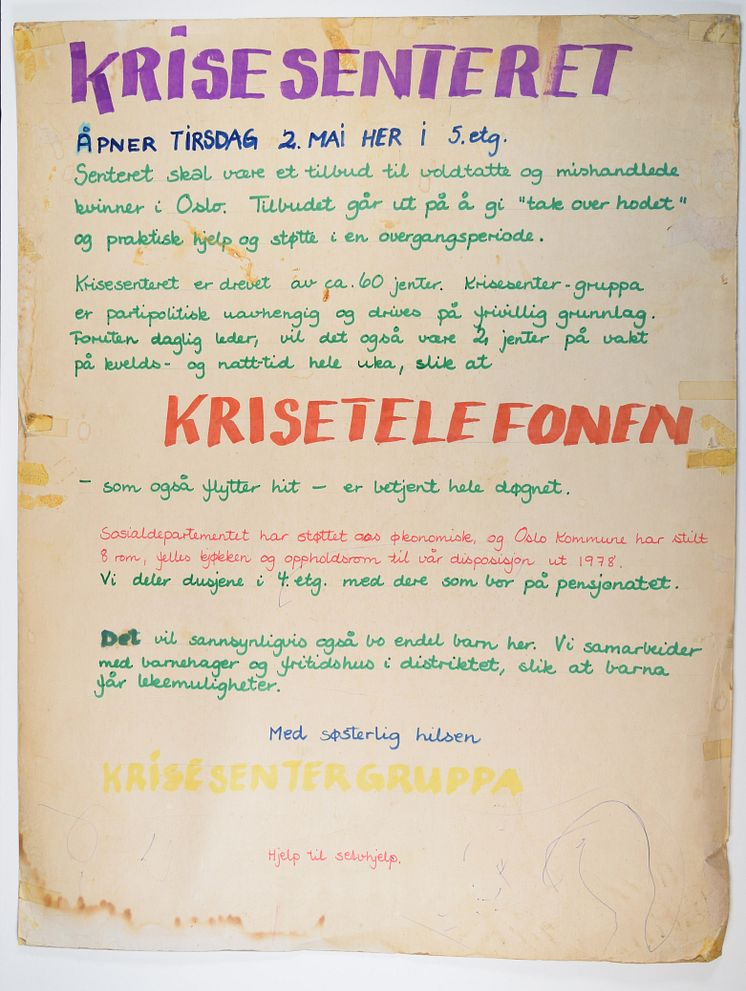 KRISESENTERET
ÅPNER TIRSDAG 2. MAI HER I 5. etg.
Senteret skal være et tilbud til voldtatte og mishandlede
kvinner i Oslo. Tilbudet går ut på å gi "tak over hodet"
og praktisk hjelp og støtte i en overgangsperiode.
Krisesenteret er drevet av ca. 60 jenter. Krisesenter-gruppa
er partipolitisk uavhengig og drives på frivillig grunnlag.
Foruten daglig leder, vil det også være 2 jenter på vakt
på kvelds- og natt-tid hele uka, slik at
KRISETELEFONEN
- som også flytter hit - er betjent hele døgnet.
Sosialdepartementet har støttet oss økonomisk, og Oslo Kommune har stilt
8 rom, felles kjøkken og oppholdsrom til vår disposisjon ut 1978.
Vi deler dusjene i 4. etg. med dere som bor på pensjonatet.
Det vil sannsynligvis også bo endel barn her. Vi samarbeider
med barnehager og fritidshus i distriktet, slik at barna
får lekemuligheter.
Med søsterlig hilsen
KRISESENTERGRUPPA
Hjelp til selvhjelp.